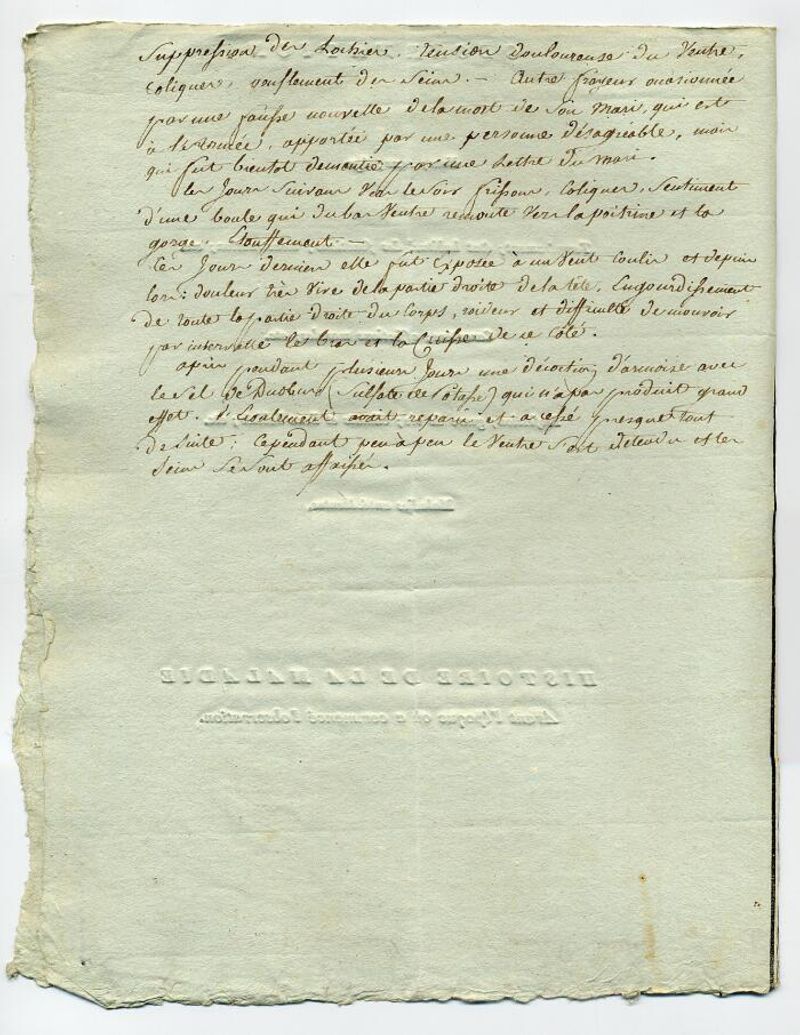 Suppression des Lochies. Tension douloureuse du Ventre,
coliques, gonflement des Seins. — Autre frayeur occasionnée
par une fausse nouvelle de la mort de Son mari, qui est
à l'armée, apportée par une personne désagréable, mais
qui fut bientot dementie par une Lettre du mari.
les Jours Suivans Vers le Soir frissons, Coliques, Sentiment
d'une boule qui du bas Ventre remonte Vers la poitrine et la
gorge. Etouffement —
Ces Jours derniers elle fut Exposée à un Vent coulis et depuis
lors: douleur très Vive de la partie droite de la tête, Engourdissement
de toute la partie droite du Corps, roideur et difficulté de mouvoir
par intervalle le bras et la Cuisse de ce côté.
a pris pendant plusieurs Jours une décoction d'armoise avec
le Sel de Duobus (Sulfate de Potasse) qui n'a pas produit grand
effet. l'Ecoulement avait reparu et a cessé presque tout
de Suite; Cependant peu à peu le Ventre s'est détendu et les
Seins Se Sont affaissés.
HISTOIRE DE LA MALADIE
Avant l'Epoque où a commencé l'observation.